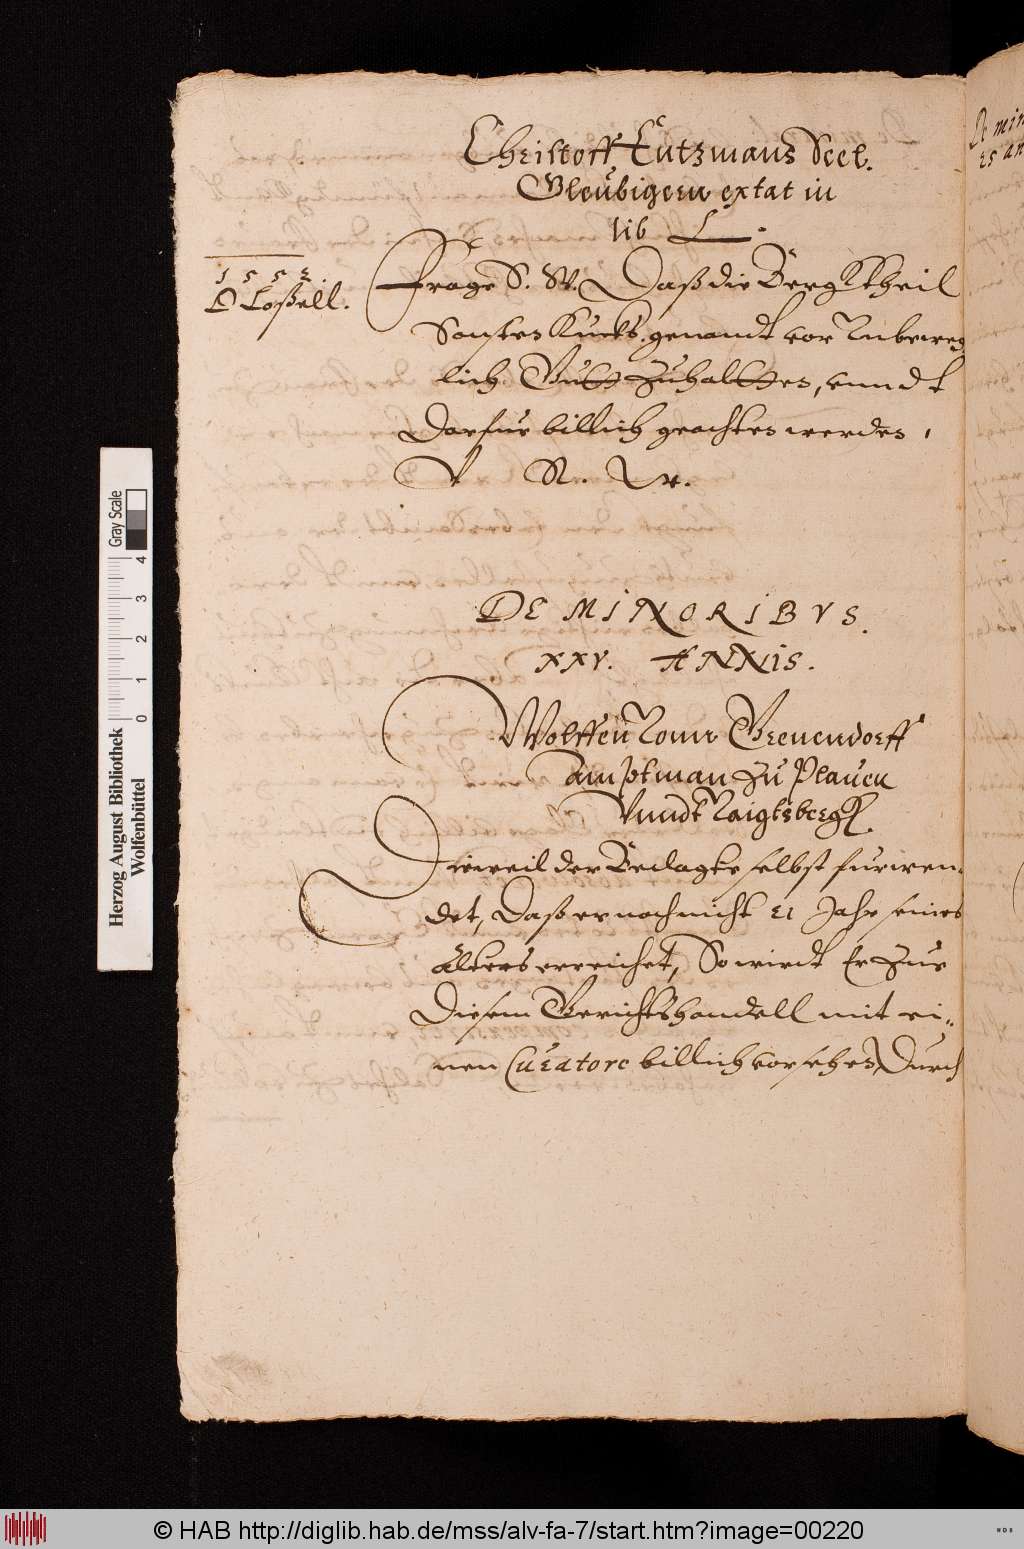 Christoff Cutzmans Seel.
Gleubigern extat in
lib L.
1552.
D Loßell.
Frage S. W. Daß die Bergktheil
Sonsten Kucks genandt vor Unbeweg
lich Gutt Zuhaltten, vnndt
Darfur billich geachten werden,
V R. W.
DE MINORIBVS.
XXV. ANNIS.
Wolffen Vonn Grevendorff
amptman Zu Plauen
Vnndt Vaigtsbergk.
Dieweil der Beclagte selbst furwen-
det, Daß er noch nicht 21 Jahr seines
alters erreichet, So wirdt Er Zue
Diesem Gerichtshandell mit ei-
nen Curatore billich vorsehen, Durch
De min
25 an
Gray Scale
0 1 2 3 4
Herzog August Bibliothek
Wolfenbüttel
© HAB http://diglib.hab.de/mss/alv-fa-7/start.htm?image=00220